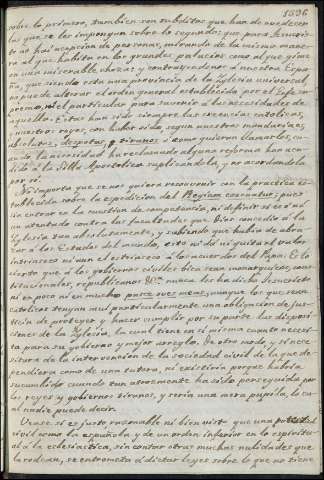 1596
sobre lo primero, tambien son subditos que han de obedecer
las que se les impongan sobre lo segundo; que para Jesucris-
to no hai acepcion de personas, mirando de la misma mane-
ra al que habita en los grandes palacios como al que gime
en una miserable choza; y contrayendonos á nuestra Espa-
ña, que siendo esta una provincia de la Iglesia universal,
no puede alterar el orden general establecido por el Gefe su-
premo, ni el particular para subvenir á las necesidades de
aquella. Estas han sido siempre las creencias católicas,
y nuestros reyes, con haber sido, segun nuestros mandarines,
absolutos, despotas, y tiranos si asi quieren llamarlos, cu-
ando la necesidad ha reclamado alguna reforma han acu-
dido á la Silla Apostólica suplicandola, y no acordandola
por sí.
No importa que se nos quiera reconvenir con la practica es-
tablecida sobre la expedicion del Regium exequatur; pues
sin entrar en la cuestion de competencia, ni definir si es ó no
un atentado contra las facultades que Dios concedió á la
Iglesia tan absolutamente, y sabiendo que habia de abra-
zar á los Estados del mundo, esto ni dá ni quita el valor
intrinseco ni aun el estrinseco á los acuerdos del Papa. Es lo
cierto que á los gobiernos civiles bien sean monarquicos, cons-
titucionales, republicanos &c.ª nunca les ha dicho Jesucristo
ni en poco ni en mucho pasce oves meas, aunque los que sean
catolicos tengan mui particularmente una obligacion de jus-
ticia de proteger y hacer cumplir por su parte las disposi-
ciones de la Iglesia, la cual tiene en sí misma cuanto necesi-
ta para su gobierno y mejor arreglo. De otro modo, y si nece-
sitara de la intervencion de la sociedad civil de la que de-
pendiera como de una tutora, ni existiria porque habria
sucumbido cuando tan atrozmente ha sido perseguida por
los reyes y gobiernos tiranos, y seria una mera pupila, lo cu-
al nadie puede decir.
Vease si es justo razonable ni bien visto que una potestad
civil como la española y de un orden inferior en lo espiritu-
al á la eclesiastica, sin contar otras muchas nulidades que
la rodean, se entrometa á dictar leyes sobre lo que no tiene